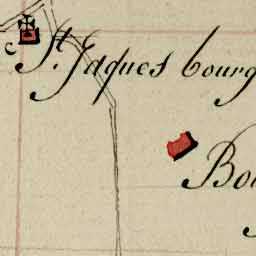 St. Jaques bourg
Bo